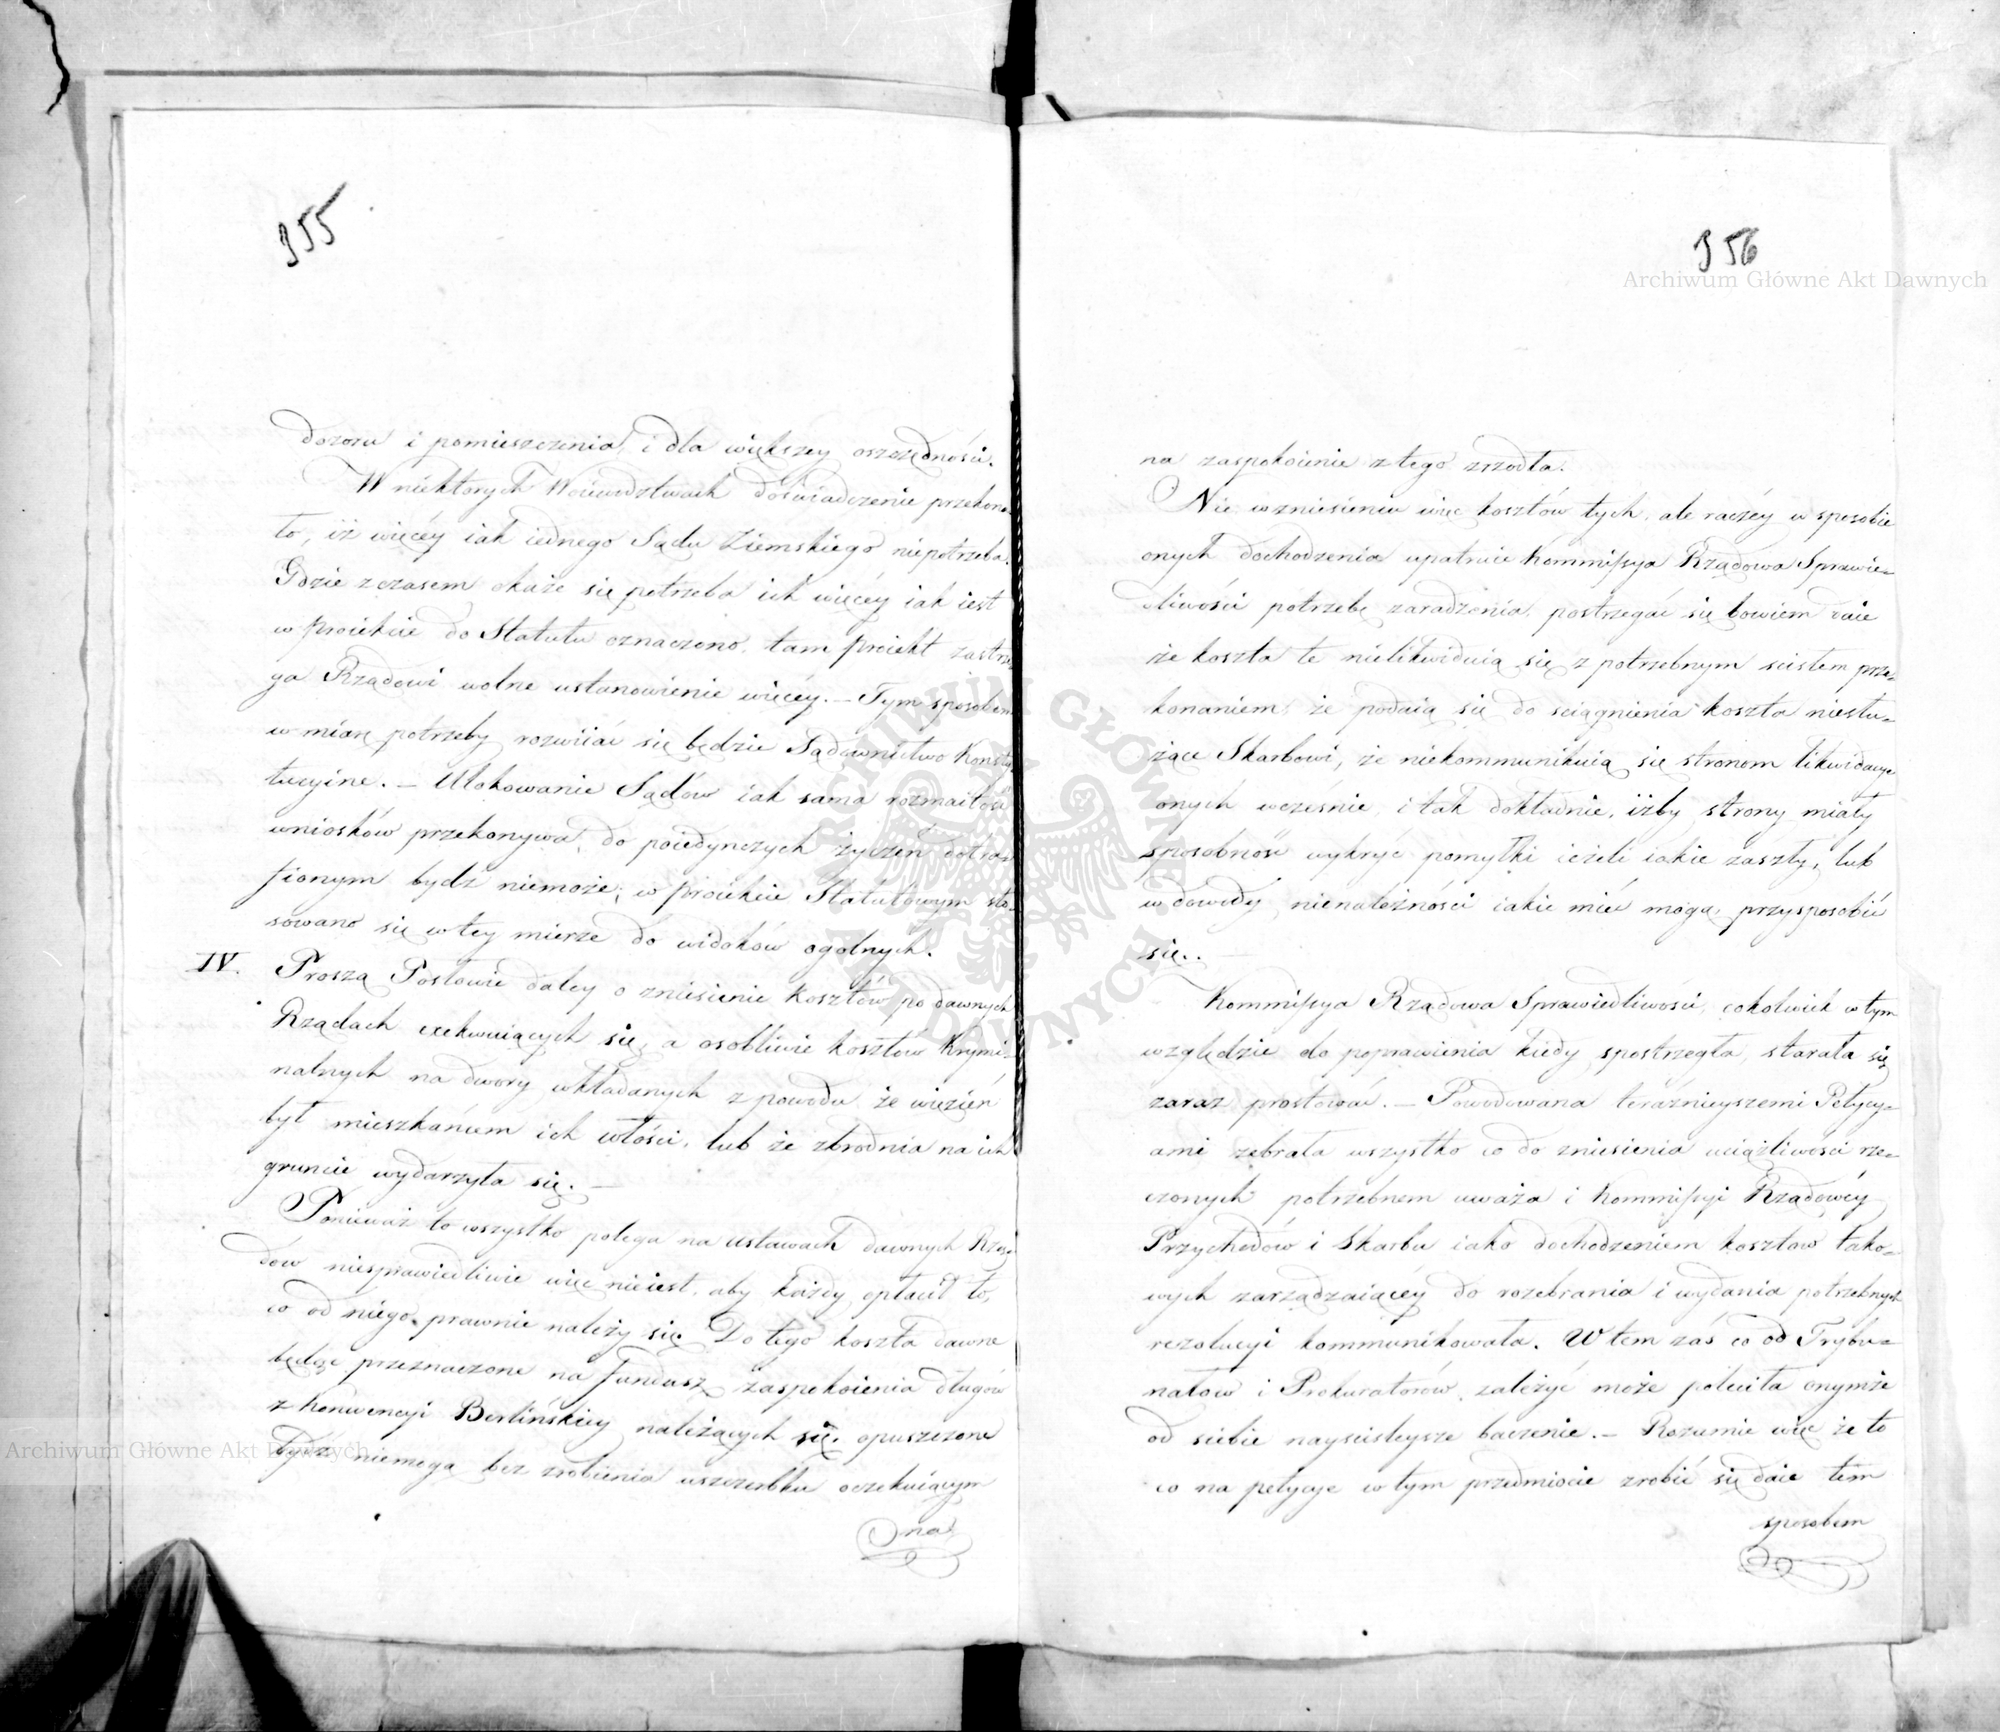 355
dozoru i pomieszczenia, i dla większey oszczędności.
W niektorych Woiewodztwach doświadczenie przekona-
ło, iż więcéy iak iednego Sądu Ziemskiego niepotrzeba.
Gdzie z czasem okaże się potrzeba ich więcéy iak iest
w proiekcie do Statutu oznaczono, tam proiekt zastrze-
ga Rządowi wolne ustanowienie więcéy. – Tym sposobem
w miarę potrzeby rozwiiać się będzie Sądownictwo Konsty-
tucyine. – Ulokowanie Sądów iak sama rozmaitość
wniosków przekonywa, do poiedynczych życzeń dotra-
fionym bydź niemoże; w proiekcie Statutowym sto-
sowano się w tey mierze do widoków ogolnych.
IV. Proszą Posłowie daley o zniesienie kosztów po dawnych
Rządach exekwuiących się, a osobliwie kosztów krymi-
nalnych na dwory wkładanych z powodu że więzień
był mieszkańcem ich włości, lub że zbrodnia na ich
gruncie wydarzyła się. –
Ponieważ to wszystko polega na ustawach dawnych Rzą-
dów niesprawiedliwie więc nieiest, aby każdy opłacił to,
co od niego prawnie należy się. Do tego koszta dawne
będąc przeznaczone na fundusz zaspokoienia długów
z konwencyi Berlińskiey należących się, opuszczone
bydź niemogą bez zrobienia uszczerbku oczekuiącym
na
356
Archiwum Główne Akt Dawnych
na zaspokoienie z tego zrzodła.
Nie w zniesieniu więc kosztów tych, ale raczéy w sposobie
onych dochodzenia upatruie Kommissya Rządowa Sprawie-
dliwości potrzebę zaradzenia, postrzegać się bowiem daie
że koszta te nielikwiduią się z potrzebnym scisłem prze-
konaniem, że podaią się do sciągnienia koszta niesłu-
żące Skarbowi, że niekommunikuią się stronom likwidacye
onych wcześnie, i tak dokładnie, iżby strony miały
sposobność wykryć pomyłki ieżeli iakie zaszły, lub
w dowody nienależności iakie mieć mogą, przysposobić
się. –
Kommissya Rządowa Sprawiedliwości, cokolwiek w tym
względzie do poprawienia kiedy spostrzegła, starała się
zaraz prostować. – Powodowana teraźnieyszemi Petycy-
ami zebrała wszystko co do zniesienia uciążliwości rze-
czonych potrzebnem uważa i Kommissyi Rządowéy
Przychodów i Skarbu iako dochodzeniem kosztow tako-
wych zarządzaiącéy do rozebrania i wydania potrzebnych
rezolucyi kommunikowała. W tem zaś co od Trybu-
nałow i Prokuratorów zależyć może poleciła onymże
od siebie nayscisleysze baczenie. – Rozumie więc że to
co na petycye w tym przedmiocie zrobić się daie tem
sposobem
Archiwum Główne Akt Dawnych
ARCHIWUM GŁÓWNE AKT DAWNYCH